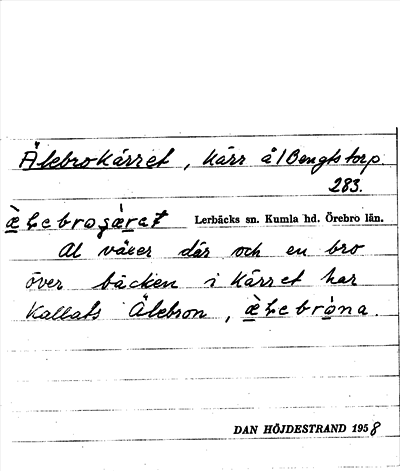 Ålebrokärret, kärr å 1 Bengtstorp
283.
Lerbäcks sn. Kumla hd. Örebro län.
Al växer där och en bro
över bäcken i kärret har
kallats Ålebron,
DAN HÖJDESTRAND 1958